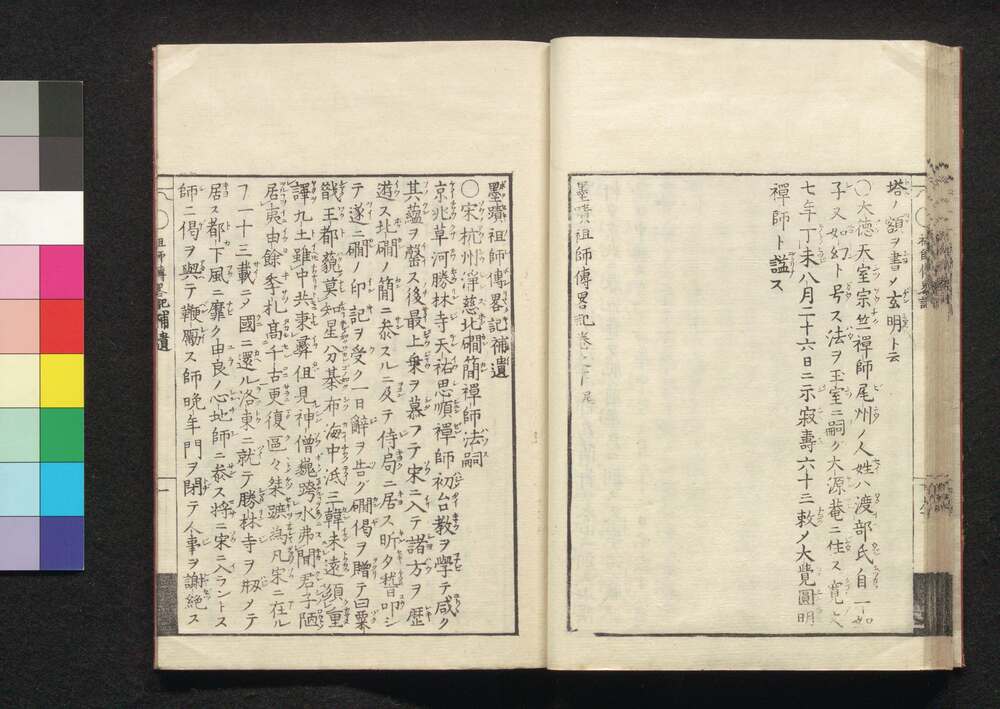 塔ノ額ヲ書メ玄明ト云
〇大德天室宗竺禪師尾州ノ人姓ハ渡部氏自一如
子又如幻ト号ス法ヲ玉室ニ嗣グ大源菴ニ住ス寛文
七年丁未八月二十六日ニ示寂壽六十三敕メ大覺圓明
禪師ト謚ス
墨蹟祖師傳畧記卷之下尾
墨蹟祖師傳畧記補遺
〇宋杭州淨慈北磵簡禪師法嗣
京兆草河勝林寺天祐思順禪師初台教ヲ學テ咸ク
其蘊ヲ罄ス後最上乗ヲ慕フテ宋ニ入テ諸方ヲ歴
遊ス北磵ノ簡ニ叅スルニ及テ侍局ニ居ス昕夕咨叩シ
テ遂ニ磵ノ印記ヲ受ク一日辭ヲ告グ磵偈ヲ贈テ曰粟
散王都藐莫知星分棊布海中泜三韓未遠須重
譯九土雖中共秉彛但見神僧能跨水弗聞君子陋
居夷由餘季札高千古更復區々桀蹠為凡宋ニ在ル
フ一十三載ニメ國ニ還ル洛東ニ就テ勝林寺ヲ剏メテ
居ス都下風ニ靡ク由良ノ心地師ニ叅ス將ニ宋ニ入ラントス
師ニ偈ヲ與テ鞭勵ス師晩年門ヲ閉テ人事ヲ謝絶ス
祖師傳畧記補遺
一